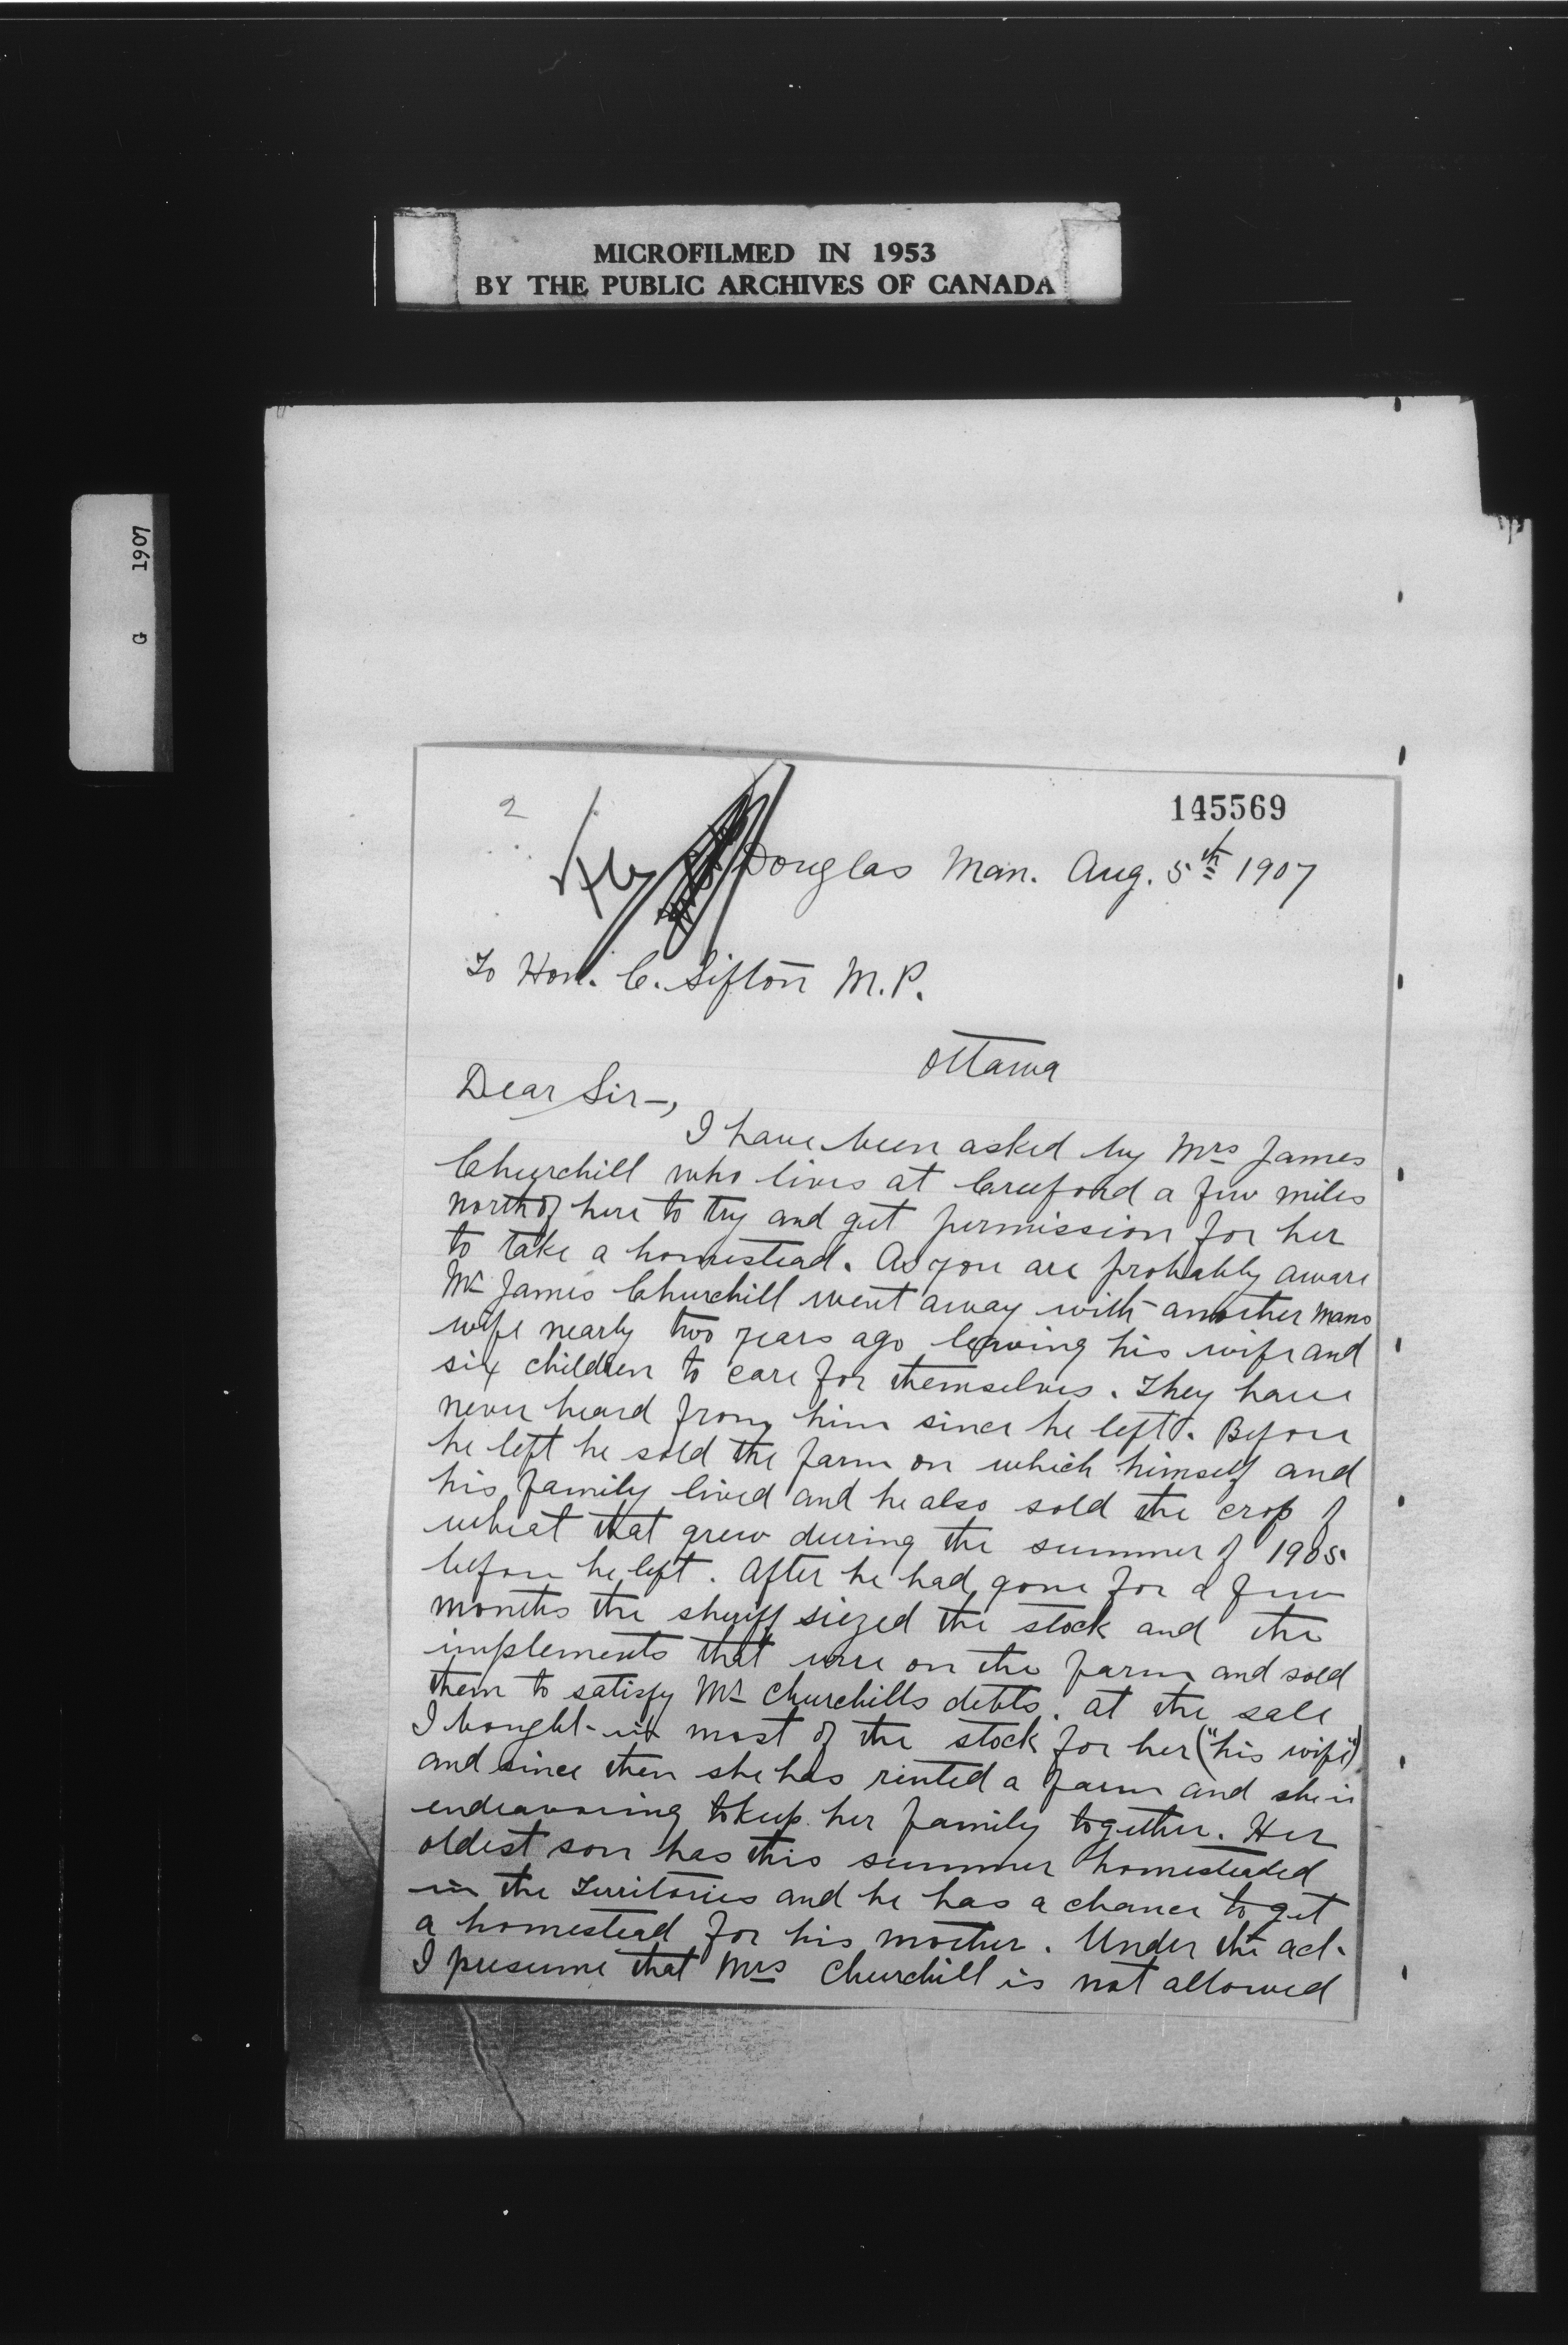 MICROFILMED IN 1953
BY THE PUBLIC ARCHIVES OF CANADA
G 1907
2
145569
Douglas Man. Aug. 5th 1907
To Hon. C. Sifton M.P.
Ottawa
Dear Sir—,
I have been asked by Mrs James
Churchill who lives at Creeford a few miles
north of here to try and get permission for her
to take a homestead. As you are probably aware
Mr James Churchill went away with another mans
wife nearly two years ago leaving his wife and
six children to care for themselves. They have
never heard from him since he left. Before
he left he sold the farm on which himself and
his family lived and he also sold the crop of
wheat that grew during the summer of 1905.
before he left. After he had gone for a few
months the sheriff siezed the stock and the
implements that were on the farm and sold
them to satisfy Mr Churchills debts. at the sale
I bought in most of the stock for her ("his wife")
and since then she has rinted a farm and she is
endeavoring to keep her family together. Her
oldest son has this summer homesteaded
in the Territories and he has a chance to get
a homestead for his mother. Under the act.
I presume that Mrs Churchill is not allowed